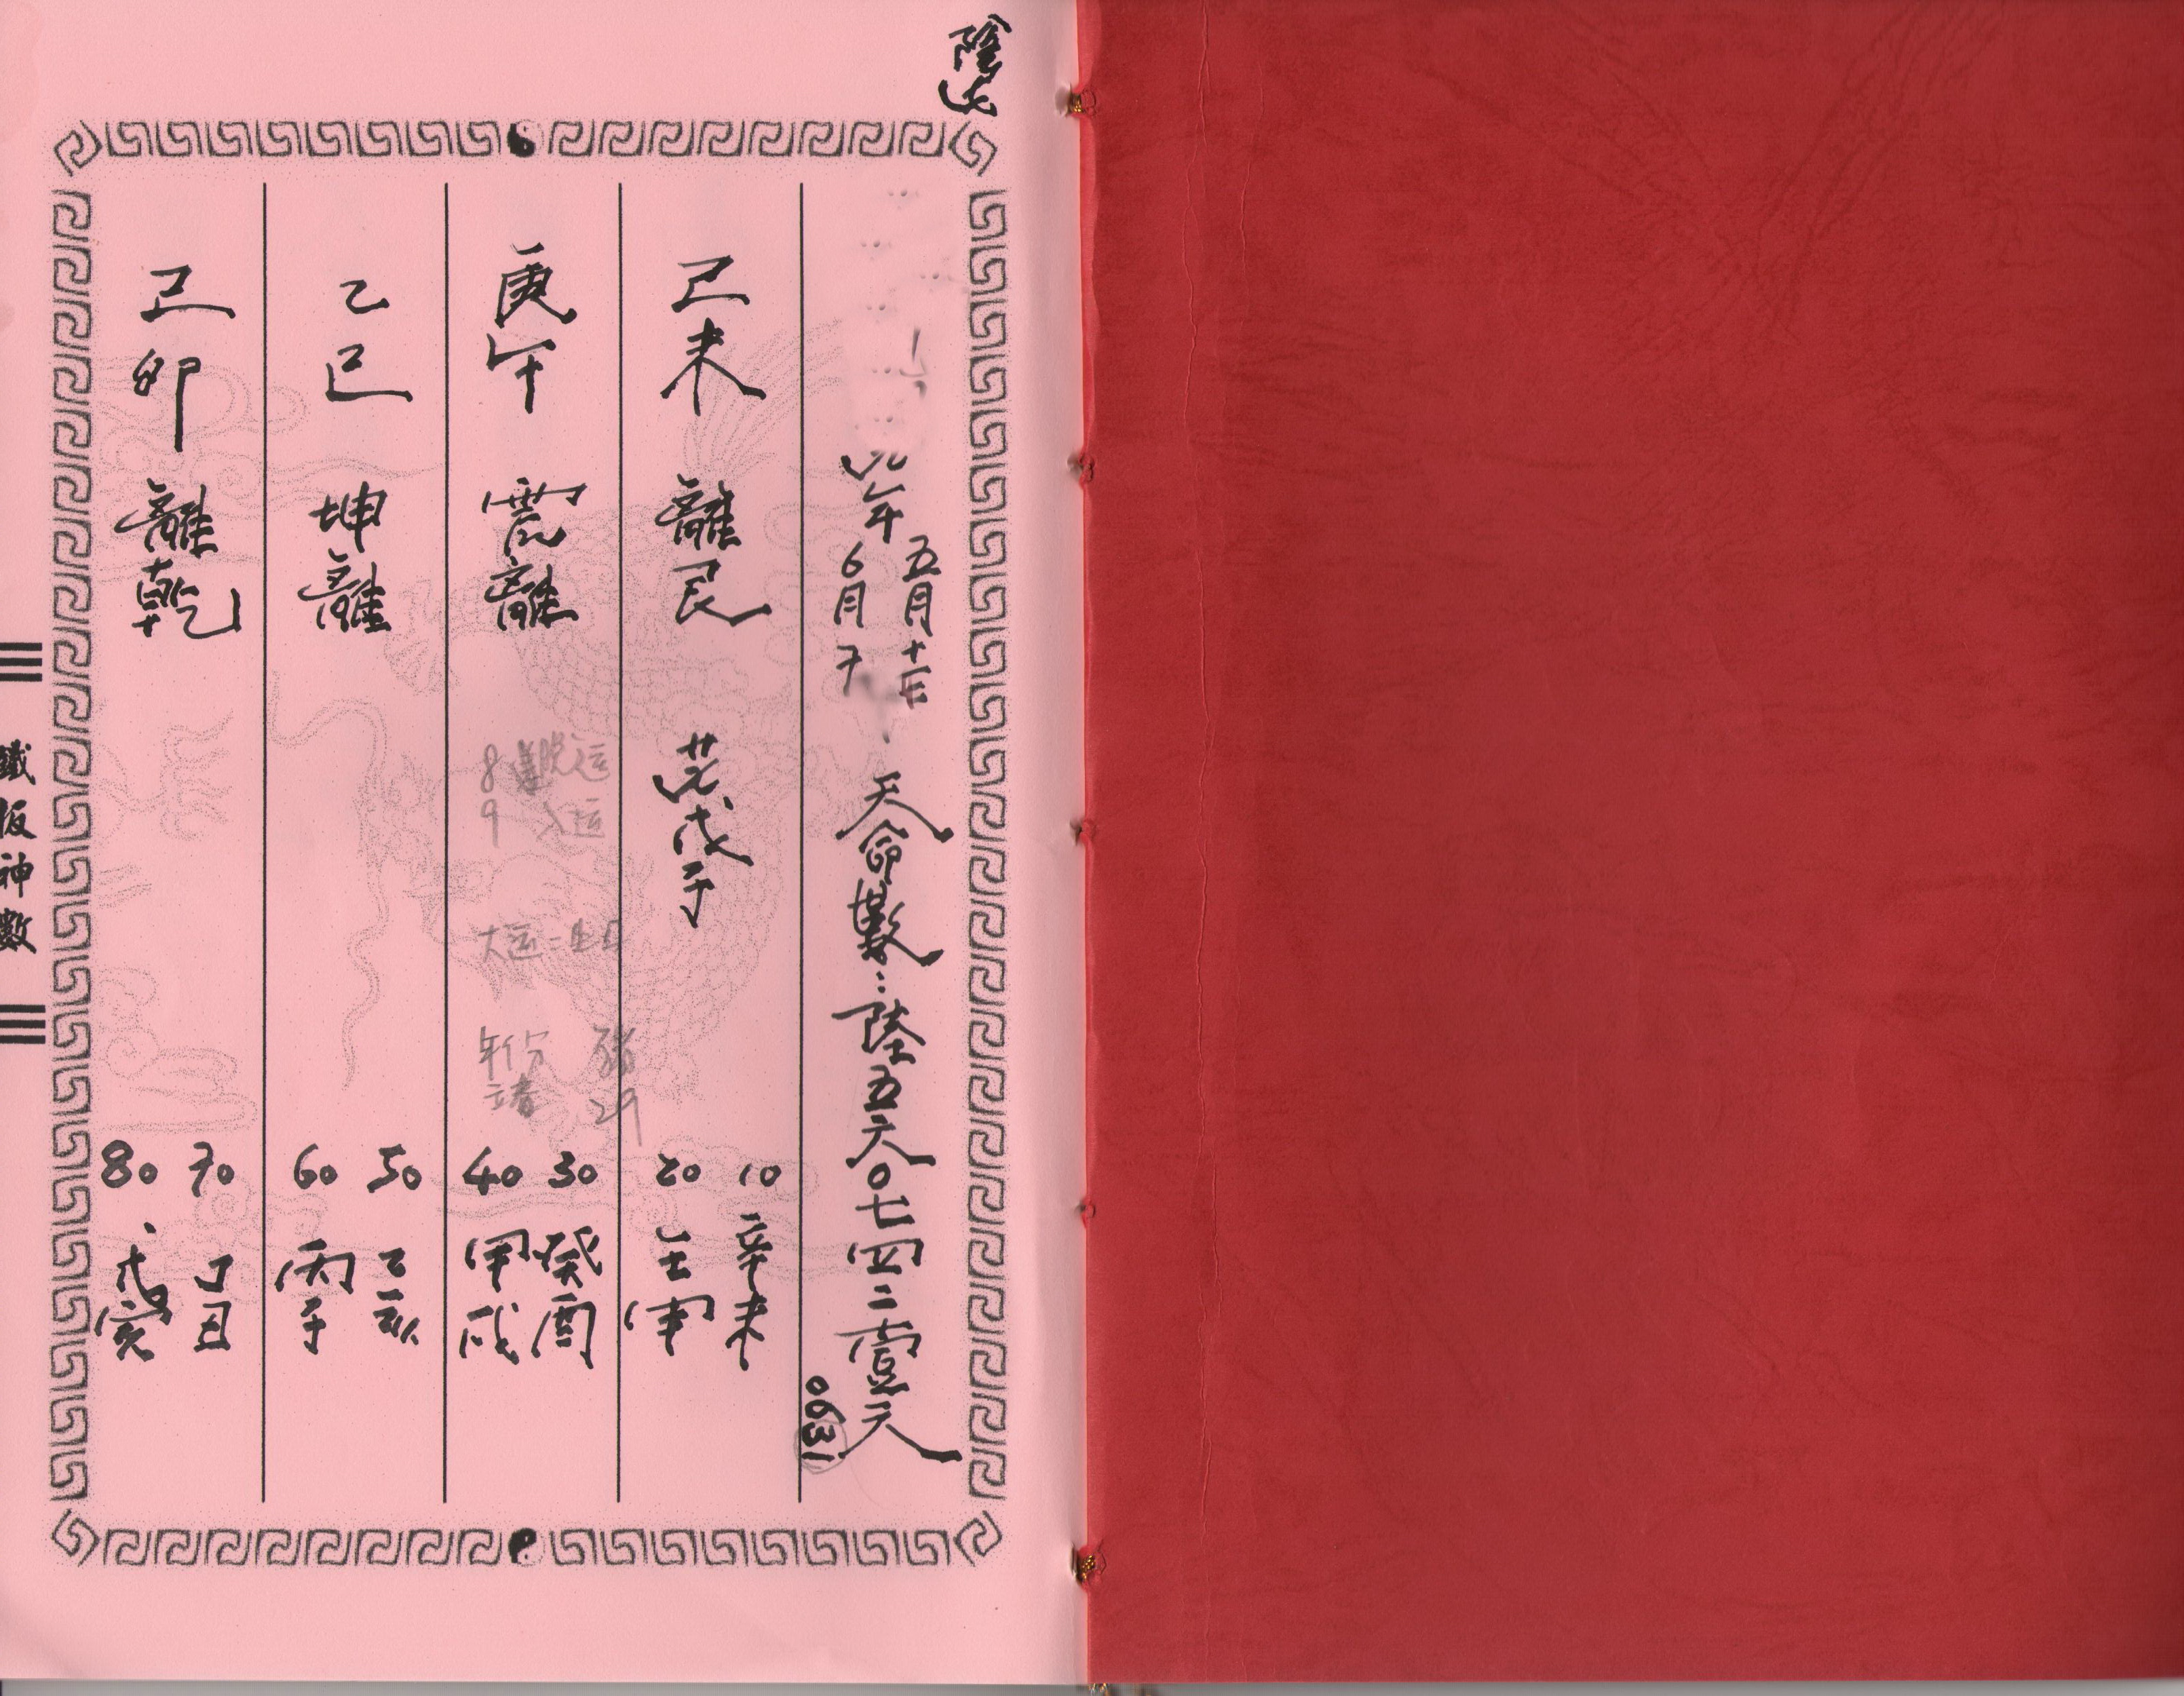 陰
年
五月十
6月7
天命數：陸五六0七四二壹六
1390
己未 離艮 戊子
10 辛未
20 壬申
庚午 震離
8 脱运
9 入运
大运二生日
年份 豬
立春 29
30 癸酉
40 甲戌
乙巳 坤離
50 乙亥
60 丙子
己卯 離乾
70 丁丑
80 戊寅
鐵板神數